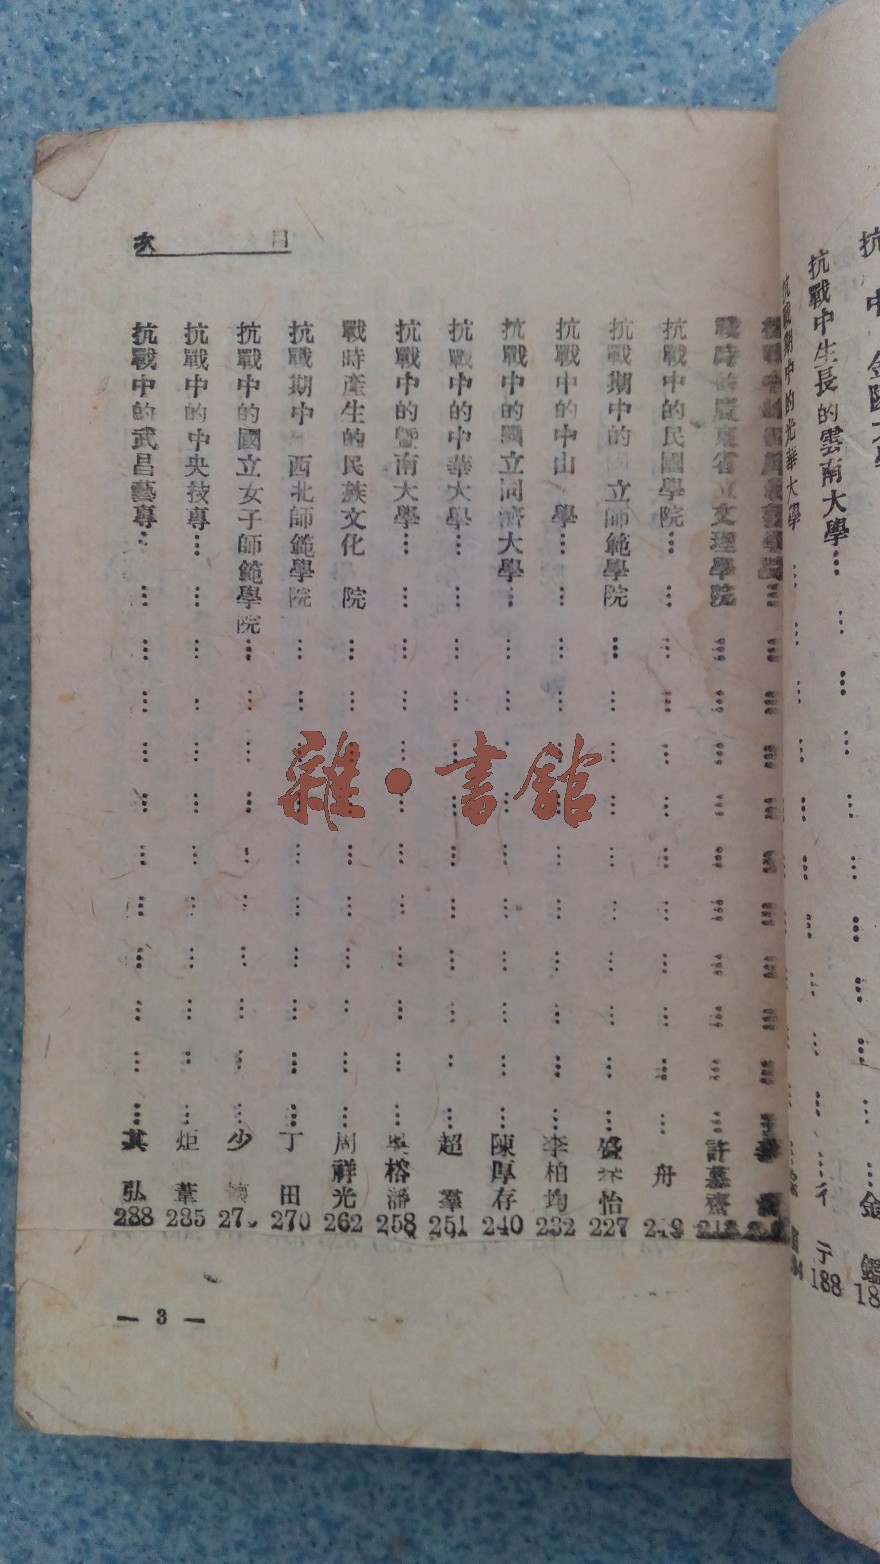 抗戰中生長的雲南大學… 188
抗戰期中的光華大學
目次
戰時的廣東省立文理學院 許慕齋
抗戰中的民國學院… 舟
抗戰期中的 立師範學院 怡 227
抗戰中的中山 學… 李柏均 232
抗戰中的國立同濟大學… 陳厚存 240
抗戰中的中華大學… 超羣 251
抗戰中的暨南大學… 258
戰時產生的民族文化 院 周祥光 262
抗戰期中 西北師範學院 丁田 270
抗戰中的國立女子師範學院… 少
抗戰中的中央技專… 炬葦 285
抗戰中的武昌藝專… 其弘 288
— 3 —
雜·書館